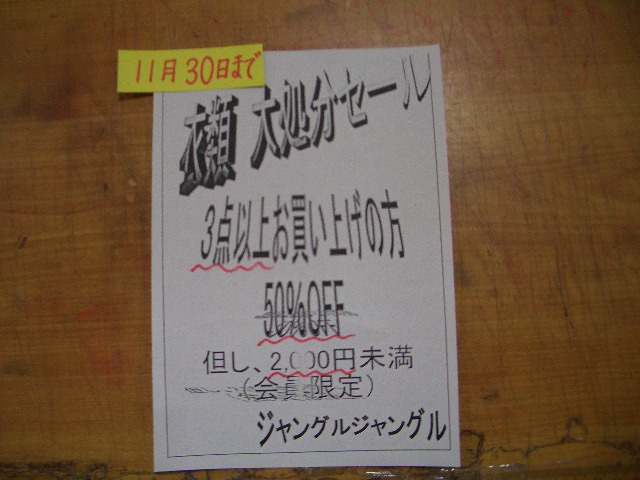 11月30日まで
衣類 大処分セール
3点以上お買い上げの方
50%OFF
但し、2,000円未満
(会員限定)
ジャングルジャングル